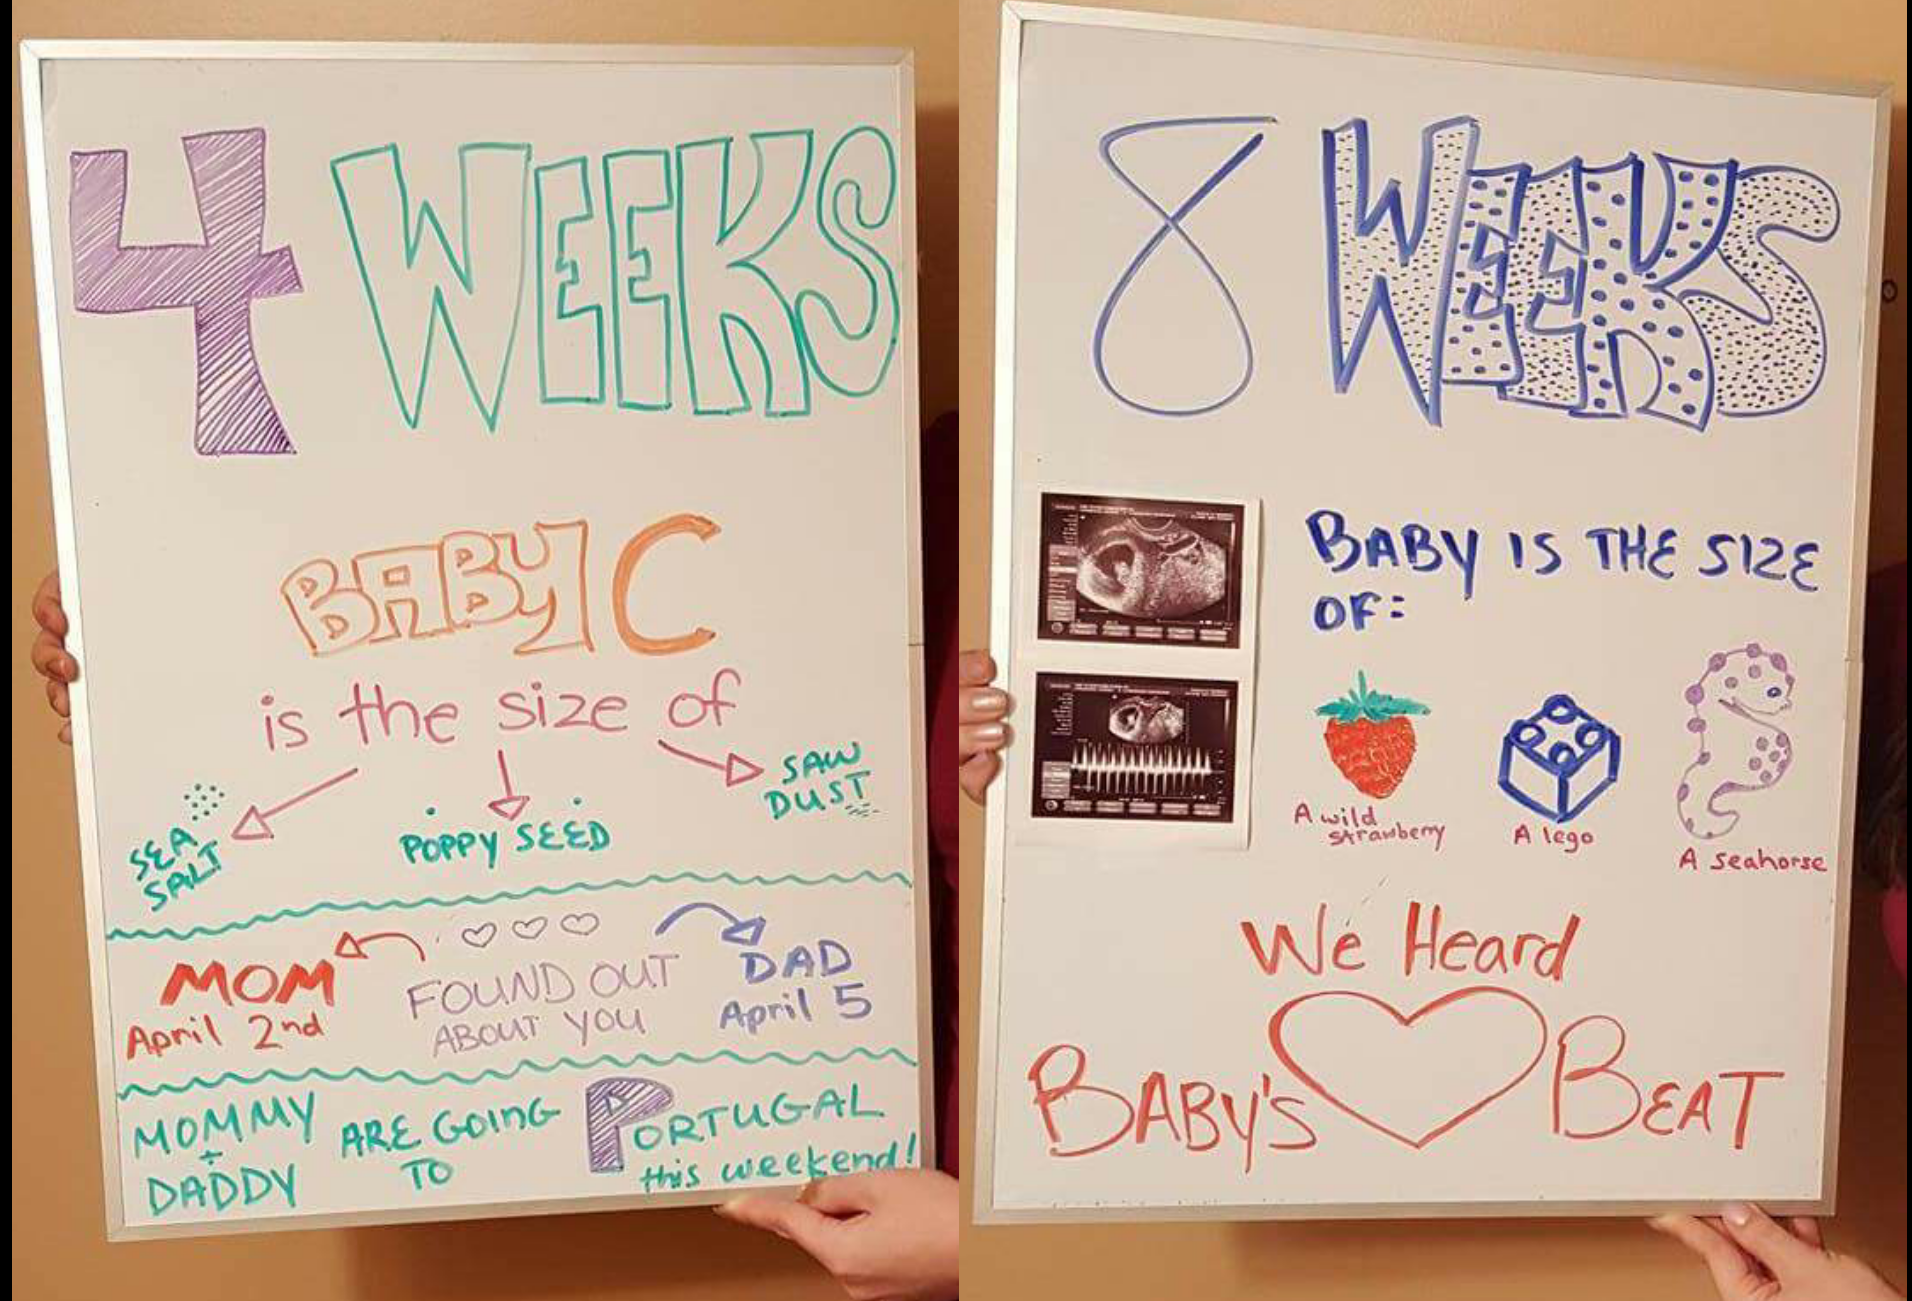 4 WEEKS
BABY C
is the size of
SEA
SALT
POPPY SEED
SAW
DUST
MOM
April 2nd
FOUND OUT
ABOUT YOU
DAD
April 5
MOMMY
+
DADDY
ARE GOING
TO
PORTUGAL
this weekend!
8 WEEKS
BABY IS THE SIZE
OF:
A wild
strawberry
A lego
A seahorse
We Heard
BABY'S BEAT